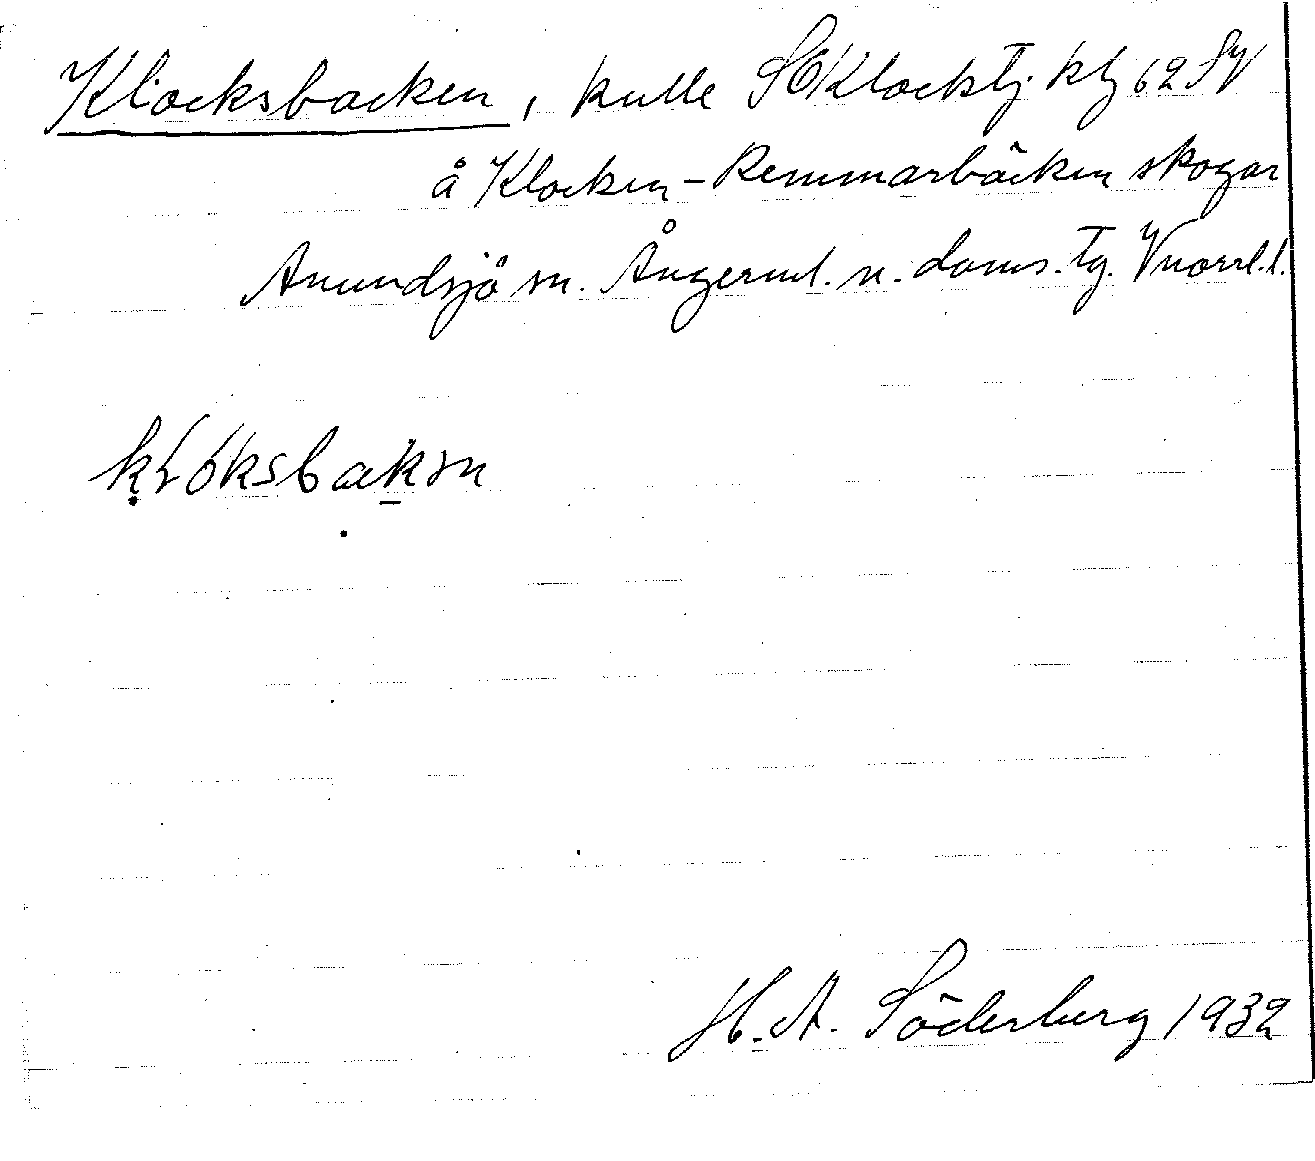 Klocksbacken, kulle SO Klocktj. kbl 62 SV
å Klocken-Remmarbäcken skogar
Anundsjö sn. Ångerml. n. doms. tg. Vnorrl. l.
klóksbakən
H. A. Söderberg 1932